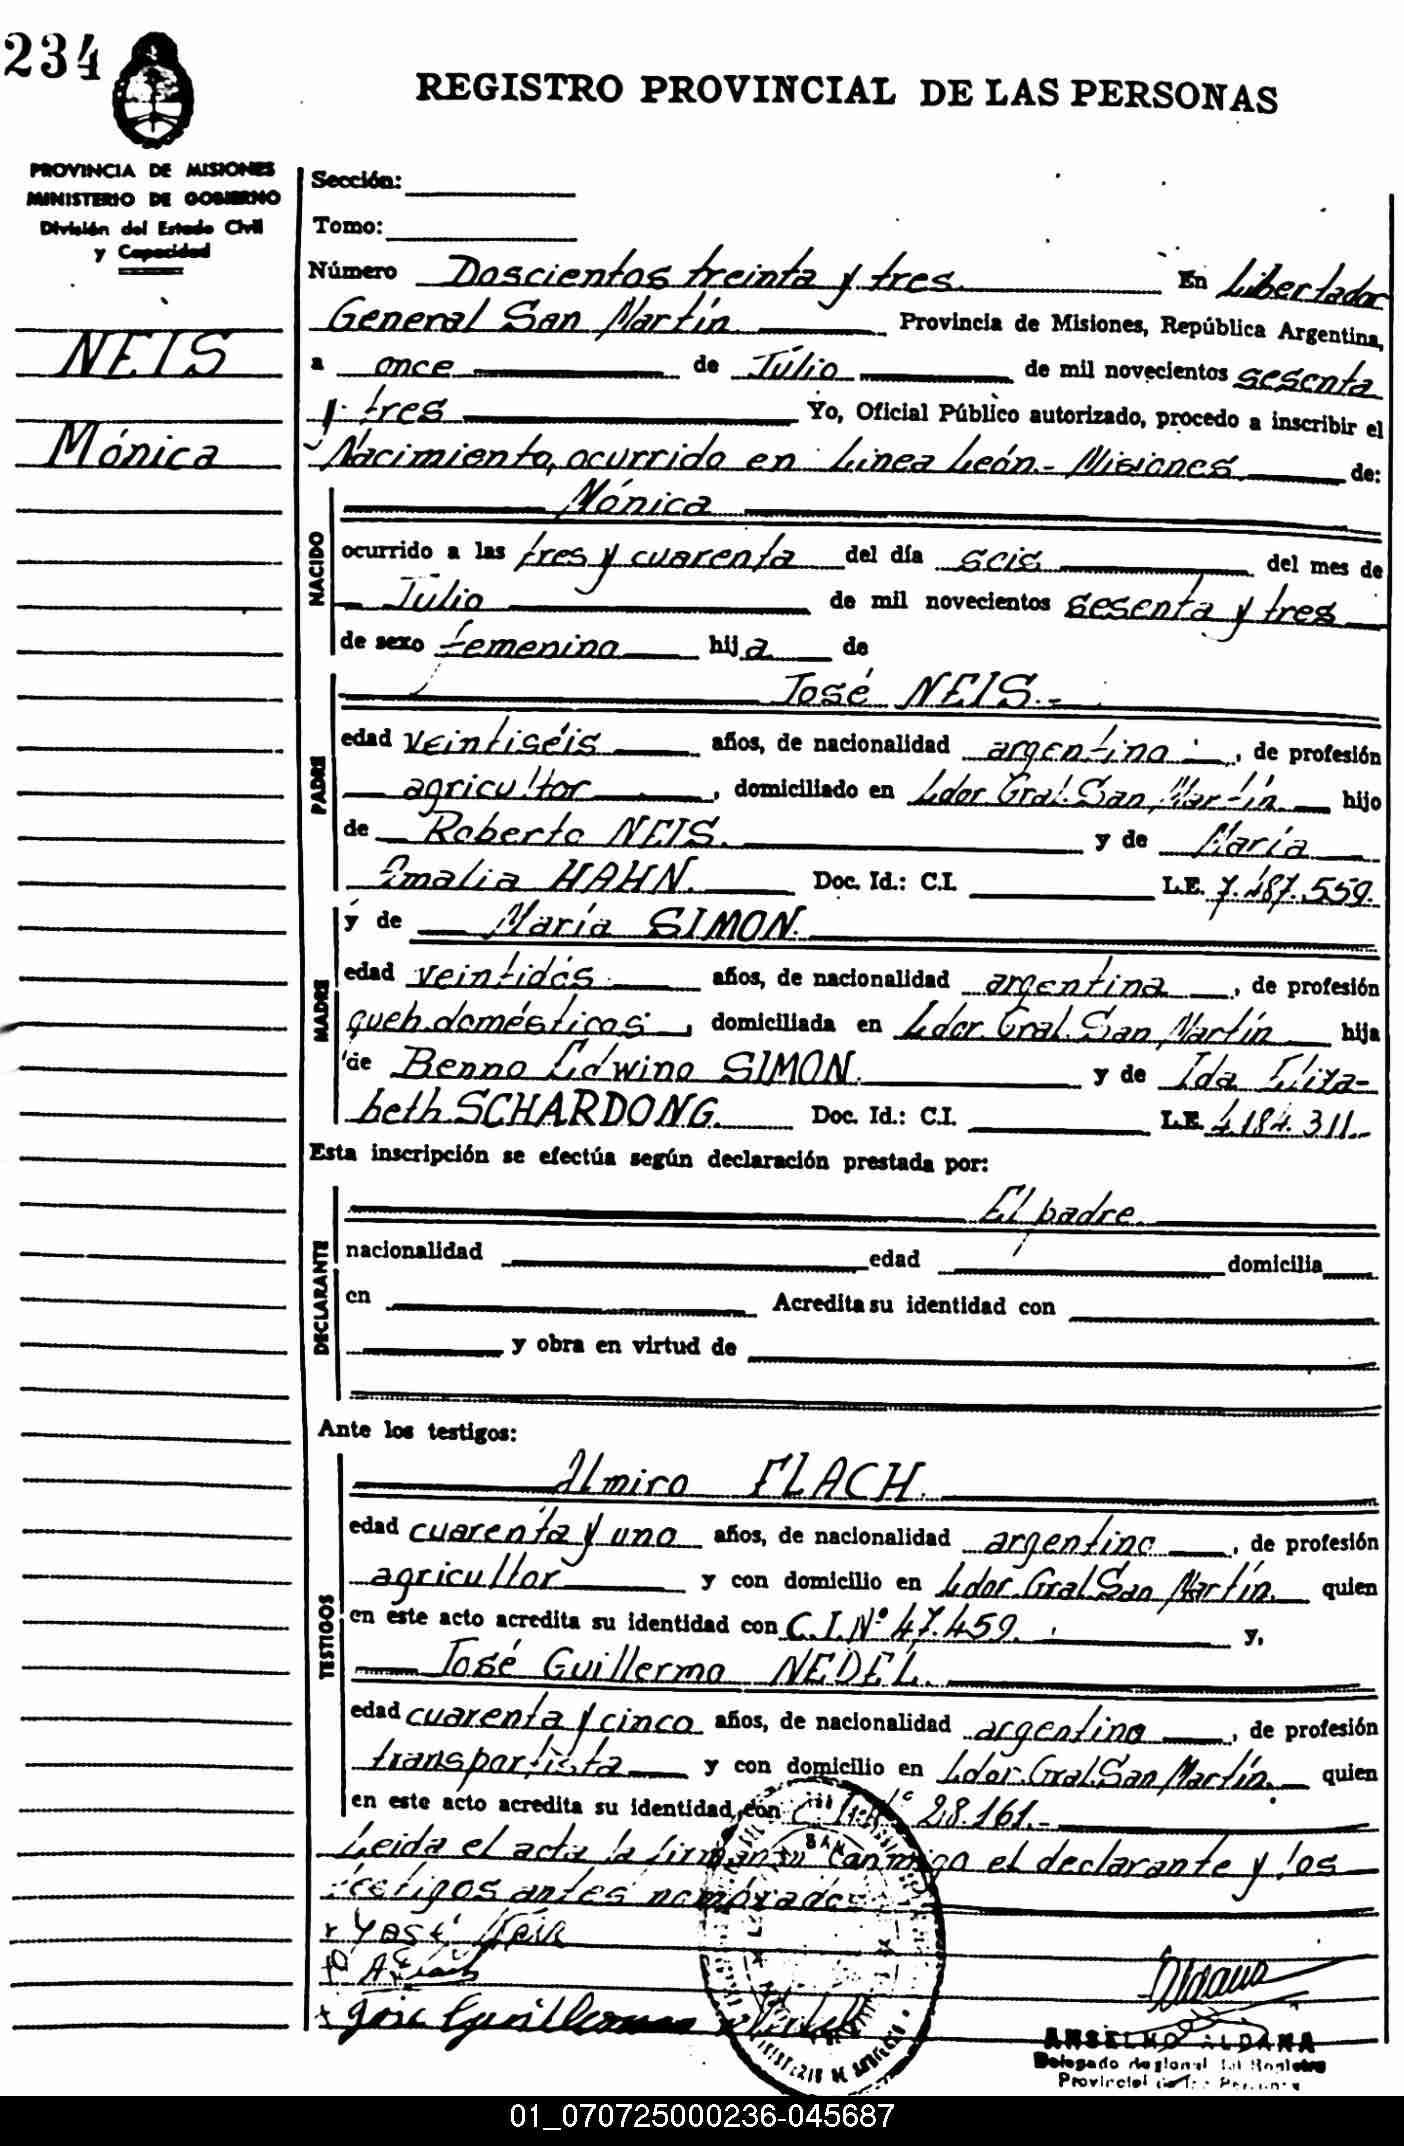 234
REGISTRO PROVINCIAL DE LAS PERSONAS
PROVINCIA DE MISIONES
MINISTERIO DE GOBIERNO
División del Estado Civil
y Capacidad
NEIS
Mónica
Sección:
Tomo:
Número Doscientos treinta y tres. En Libertador
General San Martín Provincia de Misiones, República Argentina,
a once de Julio de mil novecientos sesenta
y tres Yo, Oficial Público autorizado, procedo a inscribir el
Nacimiento, ocurrido en Linea León.- Misiones de:
NACIDO
Mónica
ocurrido a las tres y cuarenta del día seis del mes de
Julio de mil novecientos sesenta y tres
de sexo femenino hija de
PADRE
José NEIS.-
edad veintiséis años, de nacionalidad argentino, de profesión
agricultor, domiciliado en Ldor. Gral. San Martín hijo
de Roberto NEIS. y de María
Emalia HAHN. Doc. Id.: C.I. L.E. 7.487.559.
MADRE
y de María SIMON.
edad veintidós años, de nacionalidad argentina, de profesión
queh. domésticos, domiciliada en Ldor. Gral. San Martín hija
de Benno Edwino SIMON. y de Ida Eliza-
beth SCHARDONG. Doc. Id.: C.I. L.E. 4.184.311.-
Esta inscripción se efectúa según declaración prestada por:
DECLARANTE
El padre.
nacionalidad edad domicilia
en Acredita su identidad con
y obra en virtud de
Ante los testigos:
TESTIGOS
Almiro FLACH.
edad cuarenta y uno años, de nacionalidad argentino, de profesión
agricultor y con domicilio en Ldor. Gral. San Martín. quien
en este acto acredita su identidad con C.I.Nº 47.459. y,
José Guillermo NEDEL.
edad cuarenta y cinco años, de nacionalidad argentino, de profesión
transportista y con domicilio en Ldor. Gral. San Martín. quien
en este acto acredita su identidad con C.I.Nº 28.161.-
Leida el acta la firman conmigo el declarante y los
testigos antes nombrados
José Neis
José Guillermo Nedel
Aldana
ANSELMO ALDANA
Delegado Regional del Registro
Provincial de las Personas
01_070725000236-045687